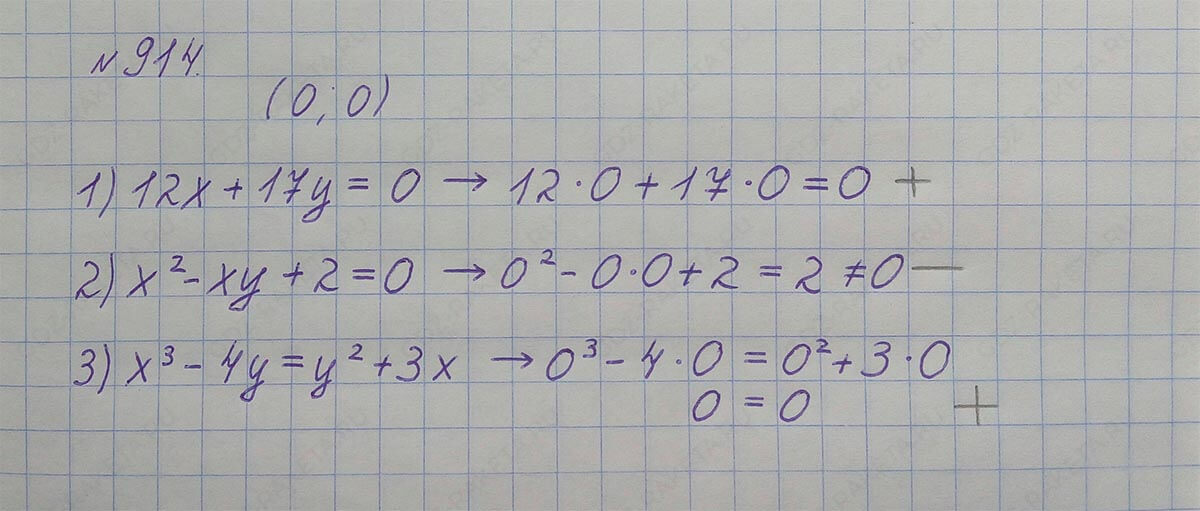 №914.
(0; 0)
1) 12x + 17y = 0 → 12·0 + 17·0 = 0 +
2) x² - xy + 2 = 0 → 0² - 0·0 + 2 = 2 ≠ 0 —
3) x³ - 4y = y² + 3x → 0³ - 4·0 = 0² + 3·0
0 = 0 +